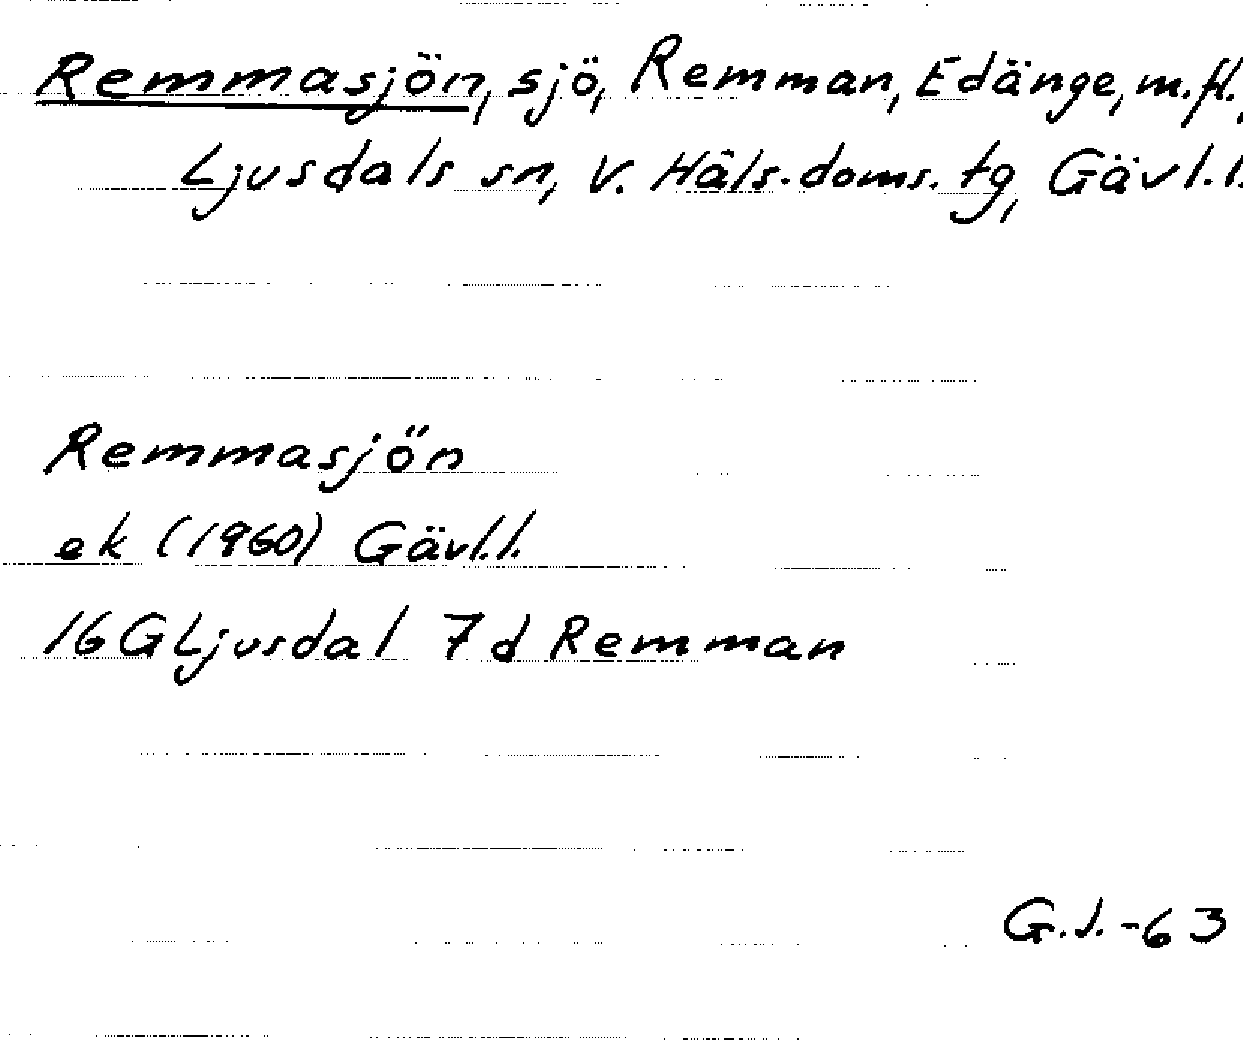 Remmasjön, sjö, Remman, Edänge, m.fl.,
Ljusdals sn, V. Häls. doms. tg, Gävl.l.
Remmasjön
ek (1960) Gävl.l.
16G Ljusdal 7d Remman
G.J.-63